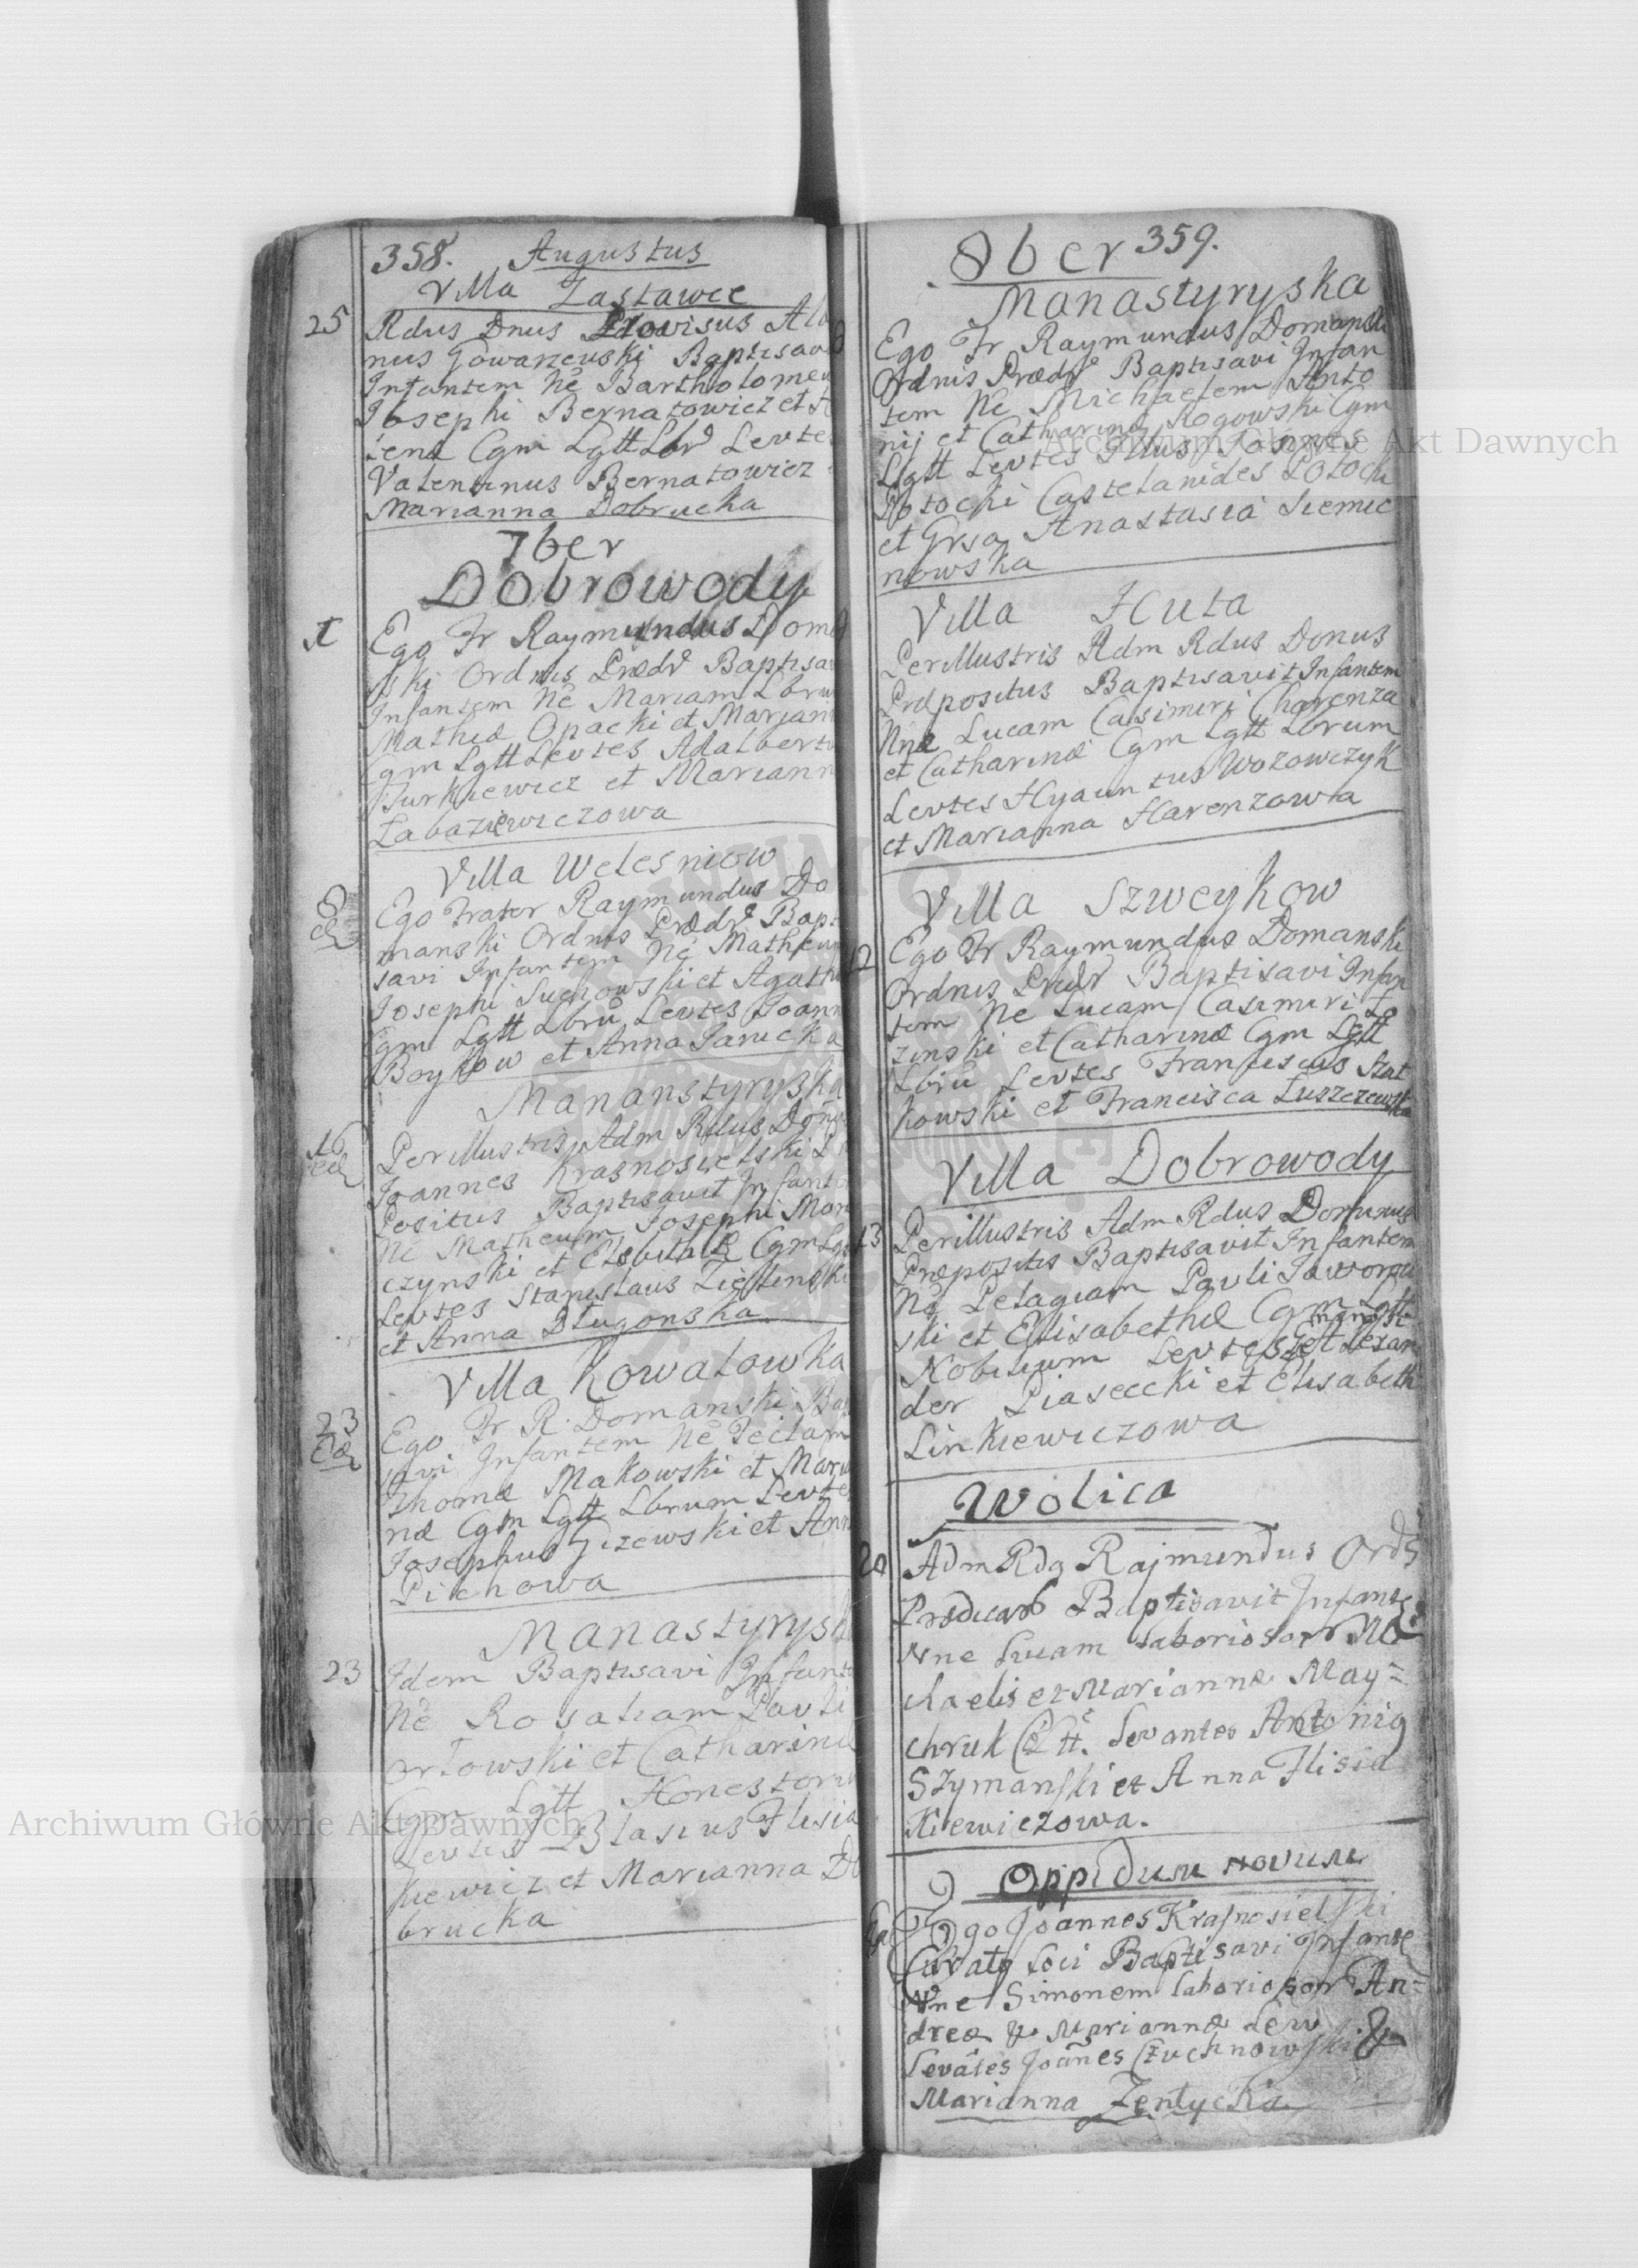 358. Augustus
Villa Zastawce
25 Rdus Dnus Provisus Alb
nus Gowarzewski Baptisav
Infantem Ne Bartholomeu
Josephi Bernatowicz et
Cgm Lgtt Lbr Levte
Valentinus Bernatowicz
Marianna Dobrucka
7ber
Dobrowody
1 Ego Fr Raymundus Doma
ski Ordnis Prædr Baptisa
Infantem Ne Mariam Lbru
Mathiæ Opacki et Mariann
Cgm Lgtt Levtes Adalbertu
Jurkiewicz et Mariann
Labaziewiczowa
Villa Welesniow
8 Ego Frater Raymundus Do
ed manski Ordnis Prædr Bapt
savi Infantem Ne Matheum
Josephi Suchowski et Agath
Cgm Lgtt Lbrū Levtes Joann
Boykow et Anna Janicka
Mananstyryska
16 Perillustris Adm Rdus Donus
Joannes Krasnosielski P
Positus Baptisavit Infant
Ne Matheum Josephi Mar
czynski et Elsbithæ Cgm Lgt
Levtes Stanislaus Zielinski
et Anna Dlugonska
Villa Kowalowka
23 Ego Fr R. Domanski Bap
savi Infantem Ne Teclam
Thomæ Makowski et Maria
næ Cgm Lgtt Lbrum Levte
Josephus Gizewski et Ann
Pichowa
Manastyrysk
23 Idem Baptisavi Infant
Ne Rosaliam Pauli
Orlowski et Catharinæ
Cgm Lgtt Honestoru
Levtes Blasius Ilisia
kiewicz et Marianna Do
brucka
8ber 359.
Manastyryska
Ego Fr Raymundus Domansk
Ordnis Prædr Baptisavi Infan
tem Ne Michaelem Anto
nij et Catharinæ Rogowski Cgm
Lgtt Levtes Illus Joannes
Potocki Castelanides Potocki
et Grsa Anastasia Siemie
nowska
Villa Huta
Perillustris Adm Rdus Donus
Præpositus Baptisavit Infantem
Nne Lucam Casimiri Charenza
et Catharinæ Cgm Lgtt Lbrum
Levtes Hyacintus Wozowczyk
et Marianna Harenzowa
Villa Szweykow
12 Ego Fr Raymundus Domanski
Ordnis Prædr Baptisavi Infan
tem Ne Lucam Casimiri Lo
zinski et Catharinæ Cgm Lgtt
Lbrū Levtes Franciscus Szat
kowski et Francisca Luszczewska
Villa Dobrowody
13 Perillustris Adm Rdus Dominus
Præpositis Baptisavit Infantem
Ne Pelagiam Pauli Jaworow
ski et Elisabethæ Cgm Lgtt
Nobilium Levtes Alexan
der Piasecki et Elisabeth
Linkiewiczowa
Wolica
20 Adm Rdg Rajmundus Ords
Prædicar Baptisavit Infante
Nne Lucam Laboriosor Mi
chaelis et Mariannæ May=
chruk Levantes Antonig
Szymanski et Anna Ilisia
Kiewiczowa.
Oppidum novum
Ego Joannes Krasnosielski
Curatg Loci Baptisavi Infante
Nne Simonem Laboriosor An=
dreæ & Mariannæ Lew
Levātes Joañes Czuchnowski &
Marianna Zentycka
Archiwum Główne Akt Dawnych
Archiwum Główne Akt Dawnych